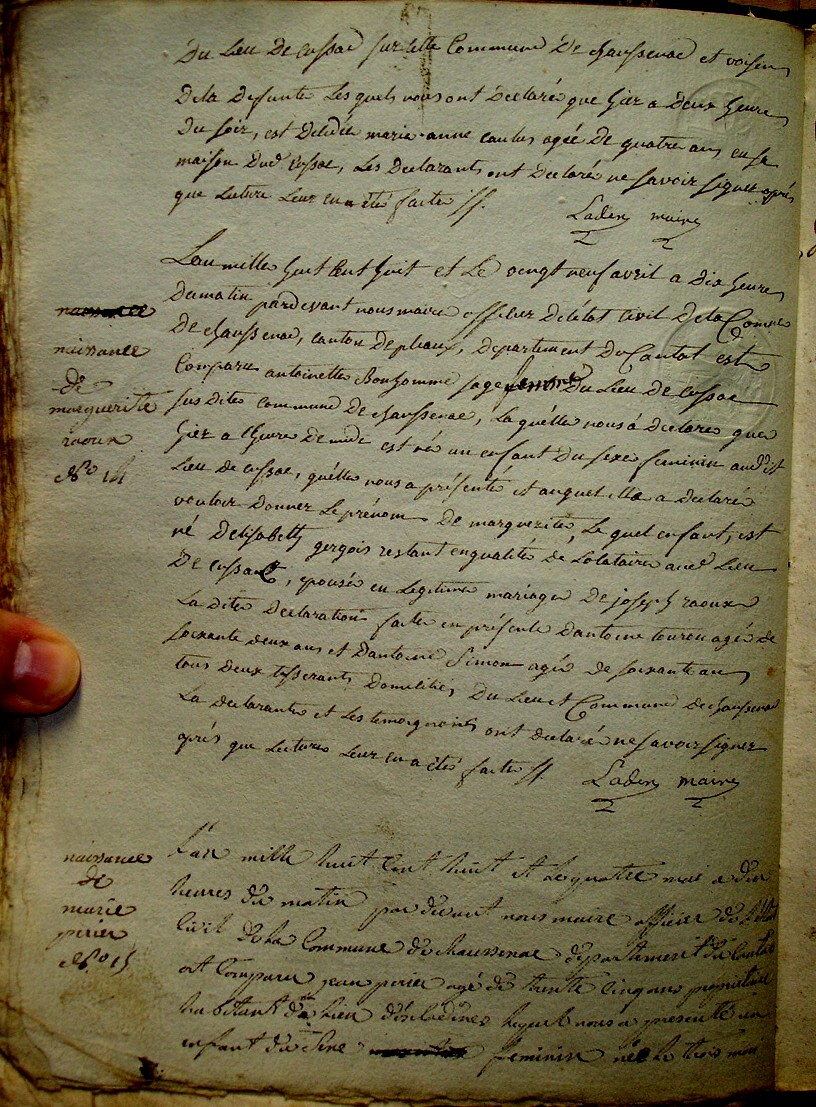 Du Lieu De Cussac sur cette Commune De Chaussenac et voisin
Dela Defunte Les quels nous ont Declaré que hier a Deux heure
Du soir, est Decedée marie anne caulus agée De quatre ans en sa
maison Dud Cussac, Les Declarants ont Declaré ne savoir signer après
que Lecture Leur en a été faite
Laden maire
L'an mille huit cent huit et Le vingt neuf avril a Dix heure
Dumatin pardevant nous maire officier De létat Civil Dela Comne
De chaussenac, canton Depleaux, Departement Du Cantal est
Comparu antoinette Bonhomme sage femme Du Lieu De cussac
sus dite commune De chaussenac, La quelle nous á Declaré que
hier a lheure De midi est né un enfant Du sexe feminin aud
Lieu De cussac, quelle nous a présenté et auquel Elle a declaré
vouloir Donner Le prénom De marguerite, Le quel enfant, est
né Delisabeth gergois restant enqualité de Lolataire aud Lieu
De cussac, épousée en Legitime mariage De joseph raoux
La dite Declaration faite en présence Dantoine tourou agé de
soixante deux ans et Dantoine Simon agé de soixante ans
tous deux tisserants Domiciliés Du Lieu et Commune de chaussenac
La declarante et Les temoignants ont declaré ne savoir signer
après que Lecture Leur en a été faite
Laden maire
naissance
naissance
de
marguerite
raoux
No 14
L'an mille huit Cent huit et le quatre mai a dix
heures du matin par devant nous maire officier de l'état
Civil De la Commune de Chaussenac département du Cantal
est Comparu jean perier agé de trente cinq ans propriétaire
habitant du Lieu lequel nous a presenté un
enfant du sexe feminin née le trois mai
naissance
de
marie
perier
No 15